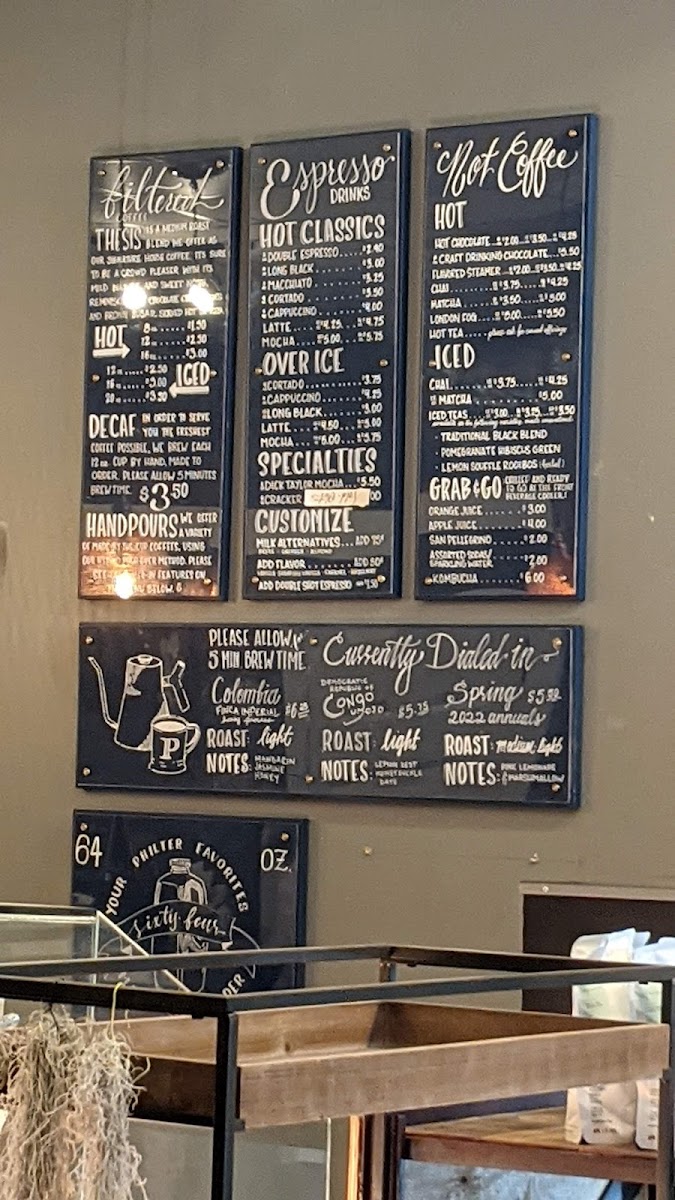 filtered
COFFEE
THESIS IS A MEDIUM ROAST
BLEND WE OFFER AS
OUR SIGNATURE HOUSE COFFEE. IT'S SURE
TO BE A CROWD PLEASER WITH ITS
MILD AND SWEET
CHOCOLATE
AND BROWN SUGAR. SERVED HOT
HOT
8 oz $1.50
12 oz $2.50
16 oz $3.00
ICED
12 oz $2.50
16 oz $3.00
20 oz $3.50
DECAF IN ORDER TO SERVE
YOU THE FRESHEST
COFFEE POSSIBLE, WE BREW EACH
12 oz. CUP BY HAND, MADE TO
ORDER. PLEASE ALLOW 5 MINUTES
BREW TIME. $3.50
HANDPOURS WE OFFER
A VARIETY
OF MADE BY THE CUP COFFEES, USING
OUR POUR OVER METHOD. PLEASE
SEE IN FEATURES ON
BELOW.
Espresso
DRINKS
HOT CLASSICS
DOUBLE ESPRESSO
LONG BLACK $3.00
MACCHIATO $3.25
CORTADO $3.50
CAPPUCCINO $4.00
LATTE $4.25 $4.75
MOCHA $5.00 $5.75
OVER ICE
CORTADO $3.75
CAPPUCCINO $4.25
LONG BLACK $3.00
LATTE $4.50 $5.00
MOCHA
SPECIALTIES
DICK TAYLOR MOCHA $5.50
CRACKER
CUSTOMIZE
MILK ALTERNATIVES ADD 75¢
ADD FLAVOR ADD 50¢
ADD DOUBLE SHOT ESPRESSO $1.50
Not Coffee
HOT
HOT CHOCOLATE $2.00 $3.50 $4.25
CRAFT DRINKING CHOCOLATE $5.50
FLAVORED STEAMER $2.00 $3.50 $4.25
CHAI $3.75 $4.25
MATCHA $3.50 $5.00
LONDON FOG $5.50
HOT TEA please ask for current offerings
ICED
CHAI $3.75 $4.25
MATCHA $5.00
ICED TEAS $3.00 $3.25 $3.50
• TRADITIONAL BLACK BLEND
• POMEGRANATE HIBISCUS GREEN
• LEMON SOUFFLE ROOIBOS (herbal)
GRAB & GO CHILLED AND READY
TO GO IN THE FRONT
BEVERAGE COOLER!
ORANGE JUICE $3.00
APPLE JUICE $4.00
SAN PELLEGRINO $2.00
ASSORTED SODAS/
SPARKLING WATER $2.00
KOMBUCHA $6.00
PLEASE ALLOW
5 MIN BREW TIME.
Currently Dialed-in
Colombia
FINCA IMPERIAL
$6.25
ROAST: light
NOTES: MANDARIN
JASMINE
HONEY
DEMOCRATIC
REPUBLIC of
CONGO
$5.25
ROAST: light
NOTES: LEMON ZEST
HONEYSUCKLE
DATE
Spring
2022 annuals
ROAST: medium-light
NOTES: PINK LEMONADE
& MARSHMALLOW
P
64 OZ.
YOUR PHILTER FAVORITES
sixty four